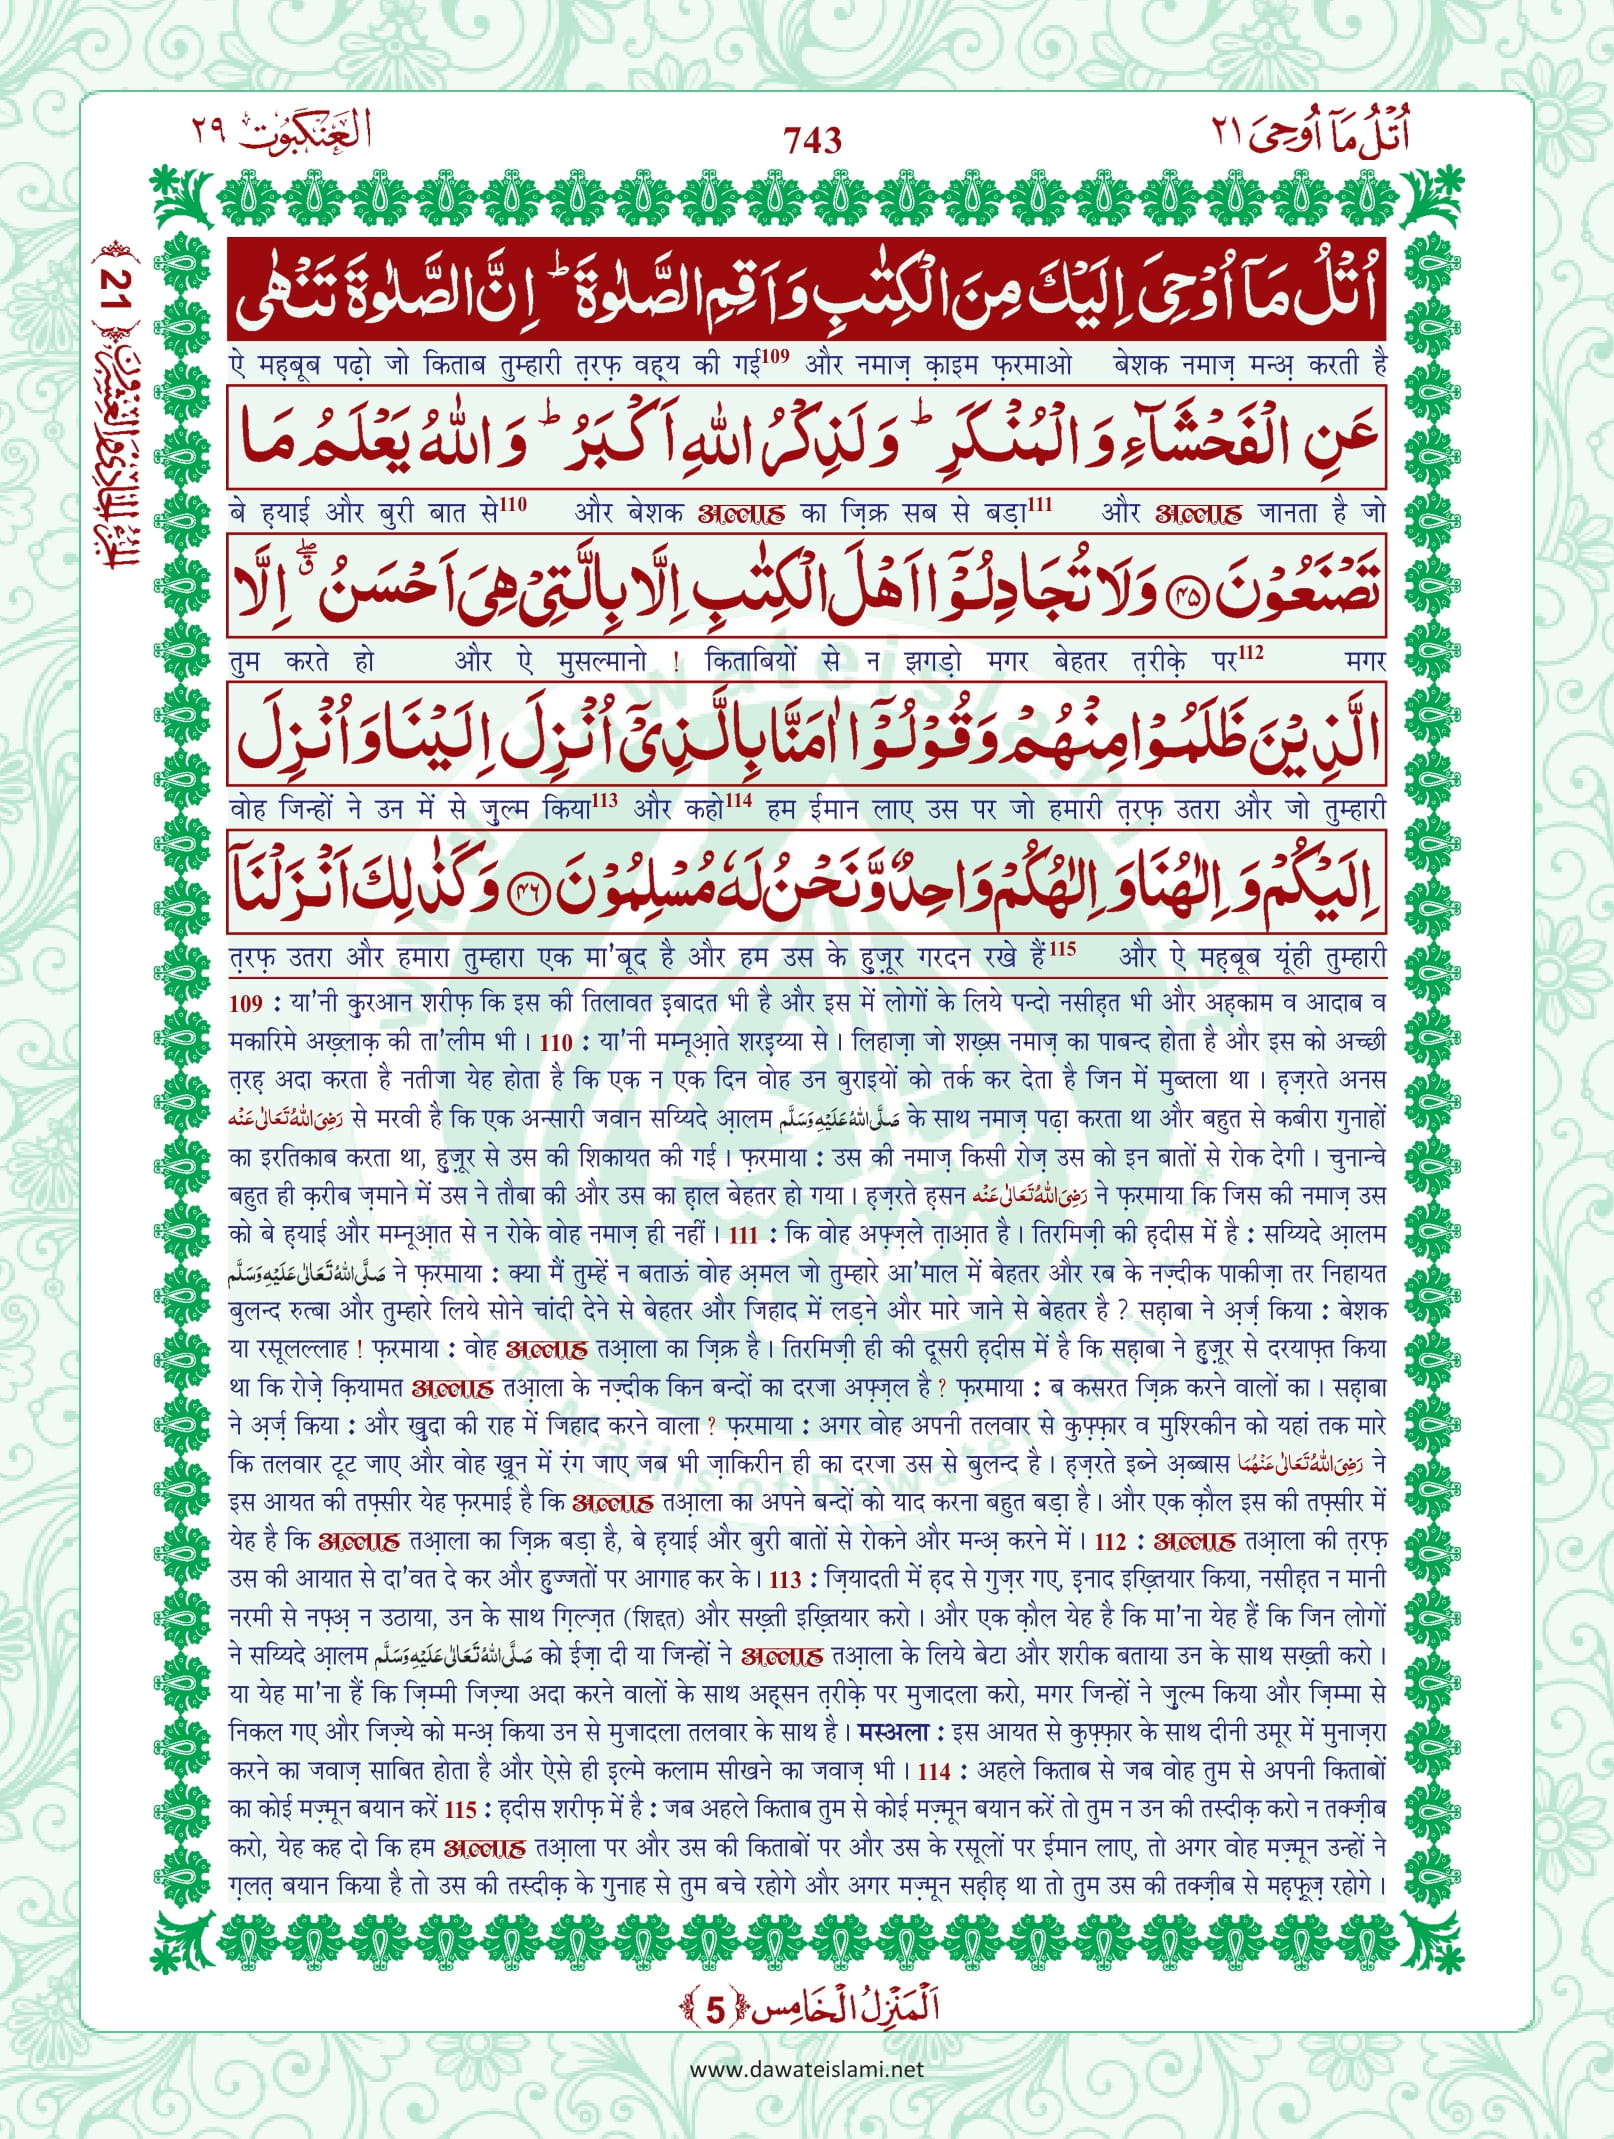 اُتْلُ مَاۤ اُوْحِیَ ٢١
743
الْعَنْكَبُوْت ٢٩
اُتْلُ مَاۤ اُوْحِیَ اِلَیْكَ مِنَ الْكِتٰبِ وَ اَقِمِ الصَّلٰوةَ ؕ اِنَّ الصَّلٰوةَ تَنْهٰى
ऐ मह़बूब पढ़ो जो किताब तुम्हारी त़रफ़ वह़्य की गई109 और नमाज़ क़ाइम फ़रमाओ बेशक नमाज़ मन्अ़ करती है
عَنِ الْفَحْشَآءِ وَ الْمُنْكَرِ ؕ وَ لَذِكْرُ اللّٰهِ اَكْبَرُ ؕ وَ اللّٰهُ یَعْلَمُ مَا
बे ह़याई और बुरी बात से110 और बेशक अल्लाह का ज़िक्र सब से बड़ा111 और अल्लाह जानता है जो
تَصْنَعُوْنَ ﴿۴۵﴾ وَ لَا تُجَادِلُوْۤا اَهْلَ الْكِتٰبِ اِلَّا بِالَّتِیْ هِیَ اَحْسَنُ ۖۗ اِلَّا
तुम करते हो और ऐ मुसल्मानो ! किताबियों से न झगड़ो मगर बेहतर त़रीक़े पर112 मगर
الَّذِیْنَ ظَلَمُوْا مِنْهُمْ وَ قُوْلُوْۤا اٰمَنَّا بِالَّذِیْۤ اُنْزِلَ اِلَیْنَا وَ اُنْزِلَ
वोह जिन्हों ने उन में से ज़ुल्म किया113 और कहो114 हम ईमान लाए उस पर जो हमारी त़रफ़ उतरा और जो तुम्हारी
اِلَیْكُمْ وَ اِلٰهُنَا وَ اِلٰهُكُمْ وَاحِدٌ وَّ نَحْنُ لَهٗ مُسْلِمُوْنَ ﴿۴۶﴾ وَ كَذٰلِكَ اَنْزَلْنَاۤ
त़रफ़ उतरा और हमारा तुम्हारा एक मा'बूद है और हम उस के हुज़ूर गरदन रखे हैं115 और ऐ मह़बूब यूंही तुम्हारी
109 : या'नी क़ुरआन शरीफ़ कि इस की तिलावत इबादत भी है और इस में लोगों के लिये पन्दो नसीह़त भी और अह़काम व आदाब व
मकारिमे अख़्लाक़ की ता'लीम भी। 110 : या'नी मम्नूआ़ते शरइय्या से। लिहाज़ा जो शख़्स नमाज़ का पाबन्द होता है और इस को अच्छी
त़रह़ अदा करता है नतीजा येह होता है कि एक न एक दिन वोह उन बुराइयों को तर्क कर देता है जिन में मुब्तला था। ह़ज़रते अनस
رَضِیَ اللّٰهُ تَعَالٰی عَنْه से मरवी है कि एक अन्सारी जवान सय्यिदे आ़लम صَلَّی اللّٰهُ عَلَیْهِ وَسَلَّم के साथ नमाज़ पढ़ा करता था और बहुत से कबीरा गुनाहों
का इरतिकाब करता था, हुज़ूर से उस की शिकायत की गई। फ़रमाया : उस की नमाज़ किसी रोज़ उस को इन बातों से रोक देगी। चुनान्चे
बहुत ही क़रीब ज़माने में उस ने तौबा की और उस का ह़ाल बेहतर हो गया। ह़ज़रते ह़सन رَضِیَ اللّٰهُ تَعَالٰی عَنْه ने फ़रमाया कि जिस की नमाज़ उस
को बे ह़याई और मम्नूआ़त से न रोके वोह नमाज़ ही नहीं। 111 : कि वोह अफ़्ज़ले त़ाआ़त है। तिरमिज़ी की ह़दीस में है : सय्यिदे आ़लम
صَلَّی اللّٰهُ تَعَالٰی عَلَیْهِ وَسَلَّم ने फ़रमाया : क्या मैं तुम्हें न बताऊं वोह अ़मल जो तुम्हारे आ'माल में बेहतर और रब के नज़्दीक पाकीज़ा तर निहायत
बुलन्द रुत्बा और तुम्हारे लिये सोने चांदी देने से बेहतर और जिहाद में लड़ने और मारे जाने से बेहतर है ? सह़ाबा ने अ़र्ज़ किया : बेशक
या रसूलल्लाह ! फ़रमाया : वोह अल्लाह तआ़ला का ज़िक्र है। तिरमिज़ी ही की दूसरी ह़दीस में है कि सह़ाबा ने हुज़ूर से दरयाफ़्त किया
था कि रोज़े क़ियामत अल्लाह तआ़ला के नज़्दीक किन बन्दों का दरजा अफ़्ज़ल है ? फ़रमाया : ब कसरत ज़िक्र करने वालों का। सह़ाबा
ने अ़र्ज़ किया : और ख़ुदा की राह में जिहाद करने वाला ? फ़रमाया : अगर वोह अपनी तलवार से कुफ़्फ़ार व मुश्रिकीन को यहां तक मारे
कि तलवार टूट जाए और वोह ख़ून में रंग जाए जब भी ज़ाकिरीन ही का दरजा उस से बुलन्द है। ह़ज़रते इब्ने अ़ब्बास رَضِیَ اللّٰهُ تَعَالٰی عَنْهُمَا ने
इस आयत की तफ़्सीर येह फ़रमाई है कि अल्लाह तआ़ला का अपने बन्दों को याद करना बहुत बड़ा है। और एक क़ौल इस की तफ़्सीर में
येह है कि अल्लाह तआ़ला का ज़िक्र बड़ा है, बे ह़याई और बुरी बातों से रोकने और मन्अ़ करने में। 112 : अल्लाह तआ़ला की त़रफ़
उस की आयात से दा'वत दे कर और हुज्जतों पर आगाह कर के। 113 : ज़ियादती में ह़द से गुज़र गए, इनाद इख़्तियार किया, नसीह़त न मानी
नरमी से नफ़्अ़ न उठाया, उन के साथ ग़िल्ज़त (शिद्दत) और सख़्ती इख़्तियार करो। और एक क़ौल येह है कि मा'ना येह हैं कि जिन लोगों
ने सय्यिदे आ़लम صَلَّی اللّٰهُ تَعَالٰی عَلَیْهِ وَسَلَّم को ईज़ा दी या जिन्हों ने अल्लाह तआ़ला के लिये बेटा और शरीक बताया उन के साथ सख़्ती करो।
या येह मा'ना हैं कि ज़िम्मी जिज़्या अदा करने वालों के साथ अह़्सन त़रीक़े पर मुजादला करो, मगर जिन्हों ने ज़ुल्म किया और ज़िम्मा से
निकल गए और जिज़्ये को मन्अ़ किया उन से मुजादला तलवार के साथ है। मस्अला : इस आयत से कुफ़्फ़ार के साथ दीनी उमूर में मुनाज़रा
करने का जवाज़ साबित होता है और ऐसे ही इल्मे कलाम सीखने का जवाज़ भी। 114 : अहले किताब से जब वोह तुम से अपनी किताबों
का कोई मज़्मून बयान करें 115 : ह़दीस शरीफ़ में है : जब अहले किताब तुम से कोई मज़्मून बयान करें तो तुम न उन की तस्दीक़ करो न तक्ज़ीब
करो, येह कह दो कि हम अल्लाह तआ़ला पर और उस की किताबों पर और उस के रसूलों पर ईमान लाए, तो अगर वोह मज़्मून उन्हों ने
ग़लत़ बयान किया है तो उस की तस्दीक़ के गुनाह से तुम बचे रहोगे और अगर मज़्मून सह़ीह़ था तो तुम उस की तक्ज़ीब से मह़फ़ूज़ रहोगे।
اَلْجُزْءُ الْحَادِیْ وَالْعِشْرُوْن ﴿21﴾
اَلْمَنْزِلُ الْخَامِس ﴿5﴾
www.dawateislami.net